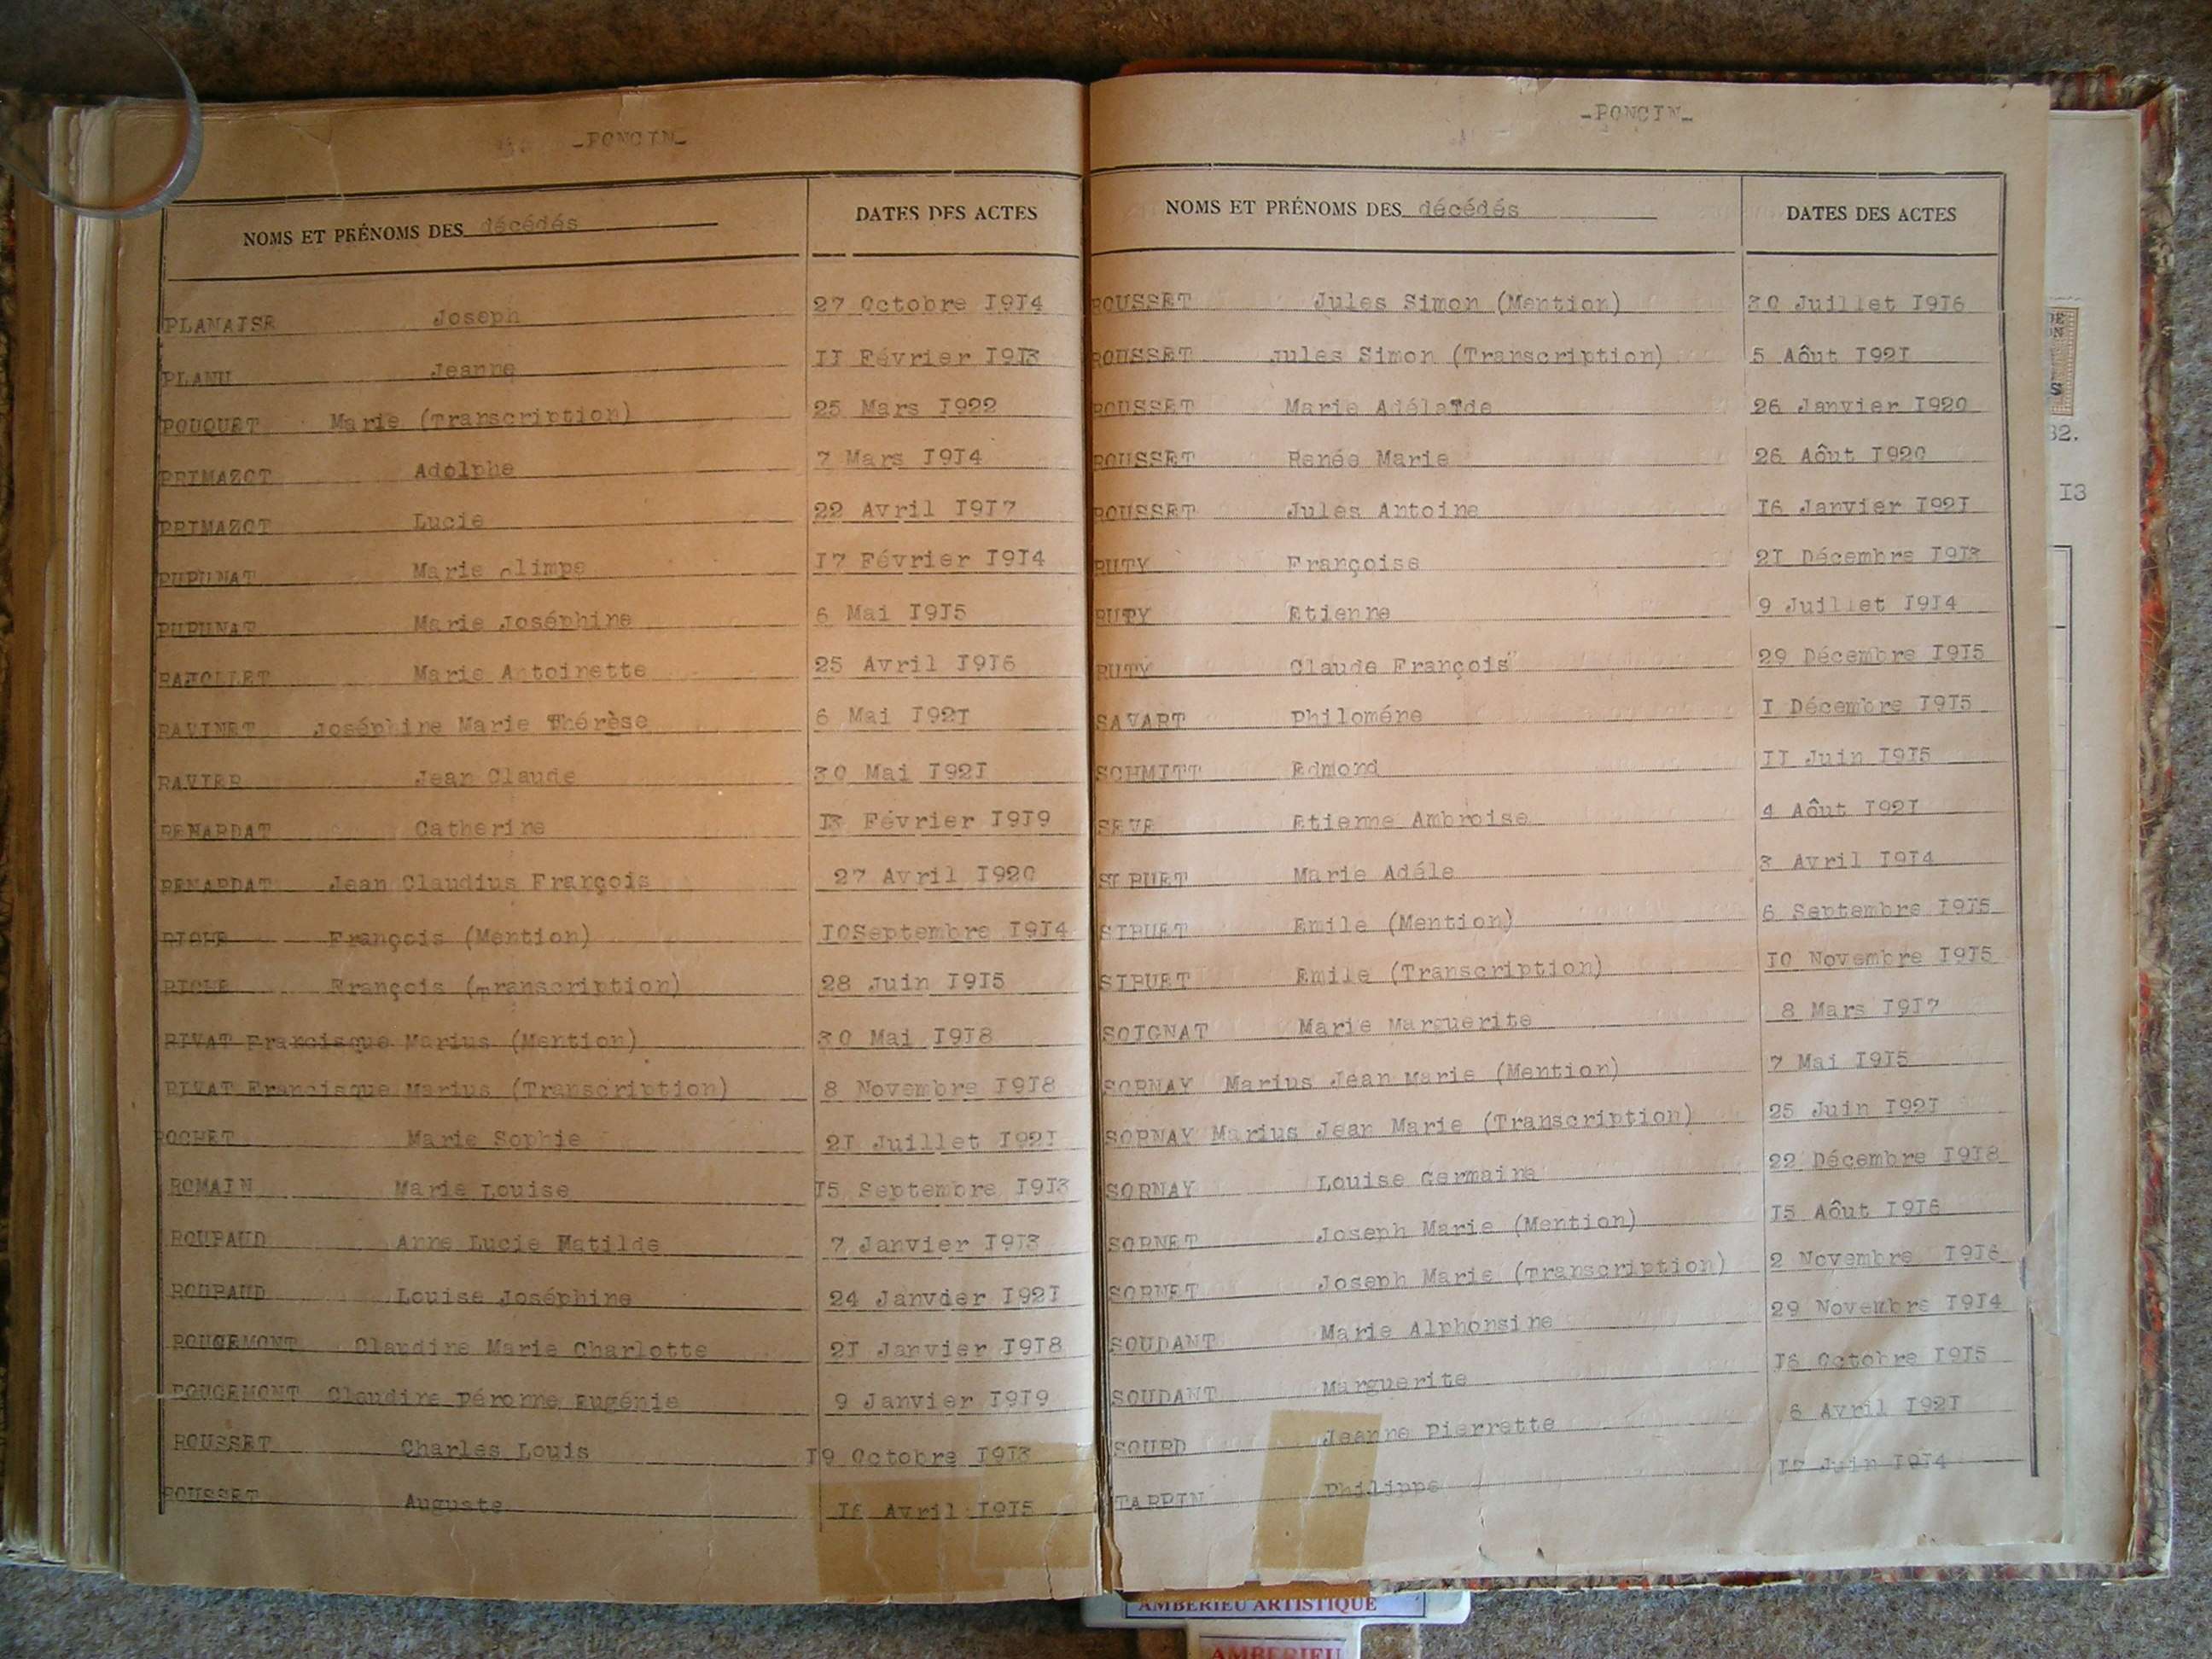 -PONCIN-
NOMS ET PRÉNOMS DES décédés DATES DES ACTES
PLANAISE Joseph 27 Octobre I9I4
PLANU Jeanne II Février I9I3
POUQUET Marie (Transcription) 25 Mars I922
PRIMAZOT Adolphe 7 Mars I9I4
PRIMAZOT Lucie 22 Avril I9I7
PUPUNAT Marie Olimpe I7 Février I9I4
PUPUNAT Marie Joséphine 6 Mai I9I5
Marie Antoinette 25 Avril I9I6
RAVINET Joséphine Marie Thérèse 6 Mai I92I
RAVIER Jean Claude 30 Mai I92I
RENARDAT Catherine I3 Février I9I9
RENARDAT Jean Claudius François 27 Avril I920
RICHE François (Mention) I0Septembre I9I4
RICHE François (Transcription) 28 Juin I9I5
RIVAT Francisque Marius (Mention) 30 Mai I9I8
RIVAT Francisque Marius (Transcription) 8 Novembre I9I8
ROCHET Marie Sophie 2I Juillet I92I
ROMAIN Marie Louise I5 Septembre I9I3
ROUPAUD Anne Lucie Matilde 7 Janvier I9I3
ROUPAUD Louise Joséphine 24 Janvier I92I
ROUGEMONT Claudine Marie Charlotte 2I Janvier I9I8
ROUGEMONT Claudine Péronne Eugénie 9 Janvier I9I9
ROUSSET Charles Louis I9 Octobre I9I3
ROUSSET Auguste I6 Avril I9I5
-PONCIN-
NOMS ET PRÉNOMS DES décédés DATES DES ACTES
ROUSSET Jules Simon (Mention) 30 Juillet I9I6
ROUSSET Jules Simon (Transcription) 5 Aôut I92I
ROUSSET Marie Adélaïde 26 Janvier I920
ROUSSET Renée Marie 26 Aôut I920
ROUSSET Jules Antoine I6 Janvier I92I
RUTY Françoise 2I Décembre I9I3
RUTY Etienne 9 Juillet I9I4
RUTY Claude François 29 Décembre I9I5
SAVART Philoméne I Décembre I9I5
SCHMITT Edmond II Juin I9I5
SEVE Etienne Ambroise 4 Aôut I92I
SIBUET Marie Adéle 3 Avril I9I4
SIBUET Emile (Mention) 6 Septembre I9I5
SIBUET Emile (Transcription) I0 Novembre I9I5
SOIGNAT Marie Marguerite 8 Mars I9I7
SORNAY Marius Jean Marie (Mention) 7 Mai I9I5
SORNAY Marius Jean Marie (Transcription) 25 Juin I92I
SORNAY Louise Germaine 22 Décembre I9I8
SORNET Joseph Marie (Mention) I5 Aôut I9I6
SORNET Joseph Marie (Transcription) 2 Novembre I9I6
SOUDANT Marie Alphonsine 29 Novembre I9I4
SOUDANT Marguerite I6 Octobre I9I5
SOURD Jeanne Pierrette 6 Avril I92I
TARPIN Philippe I7 Juin I9I4
32.
I3
AMBERIEU ARTISTIQUE
AMBERIEU